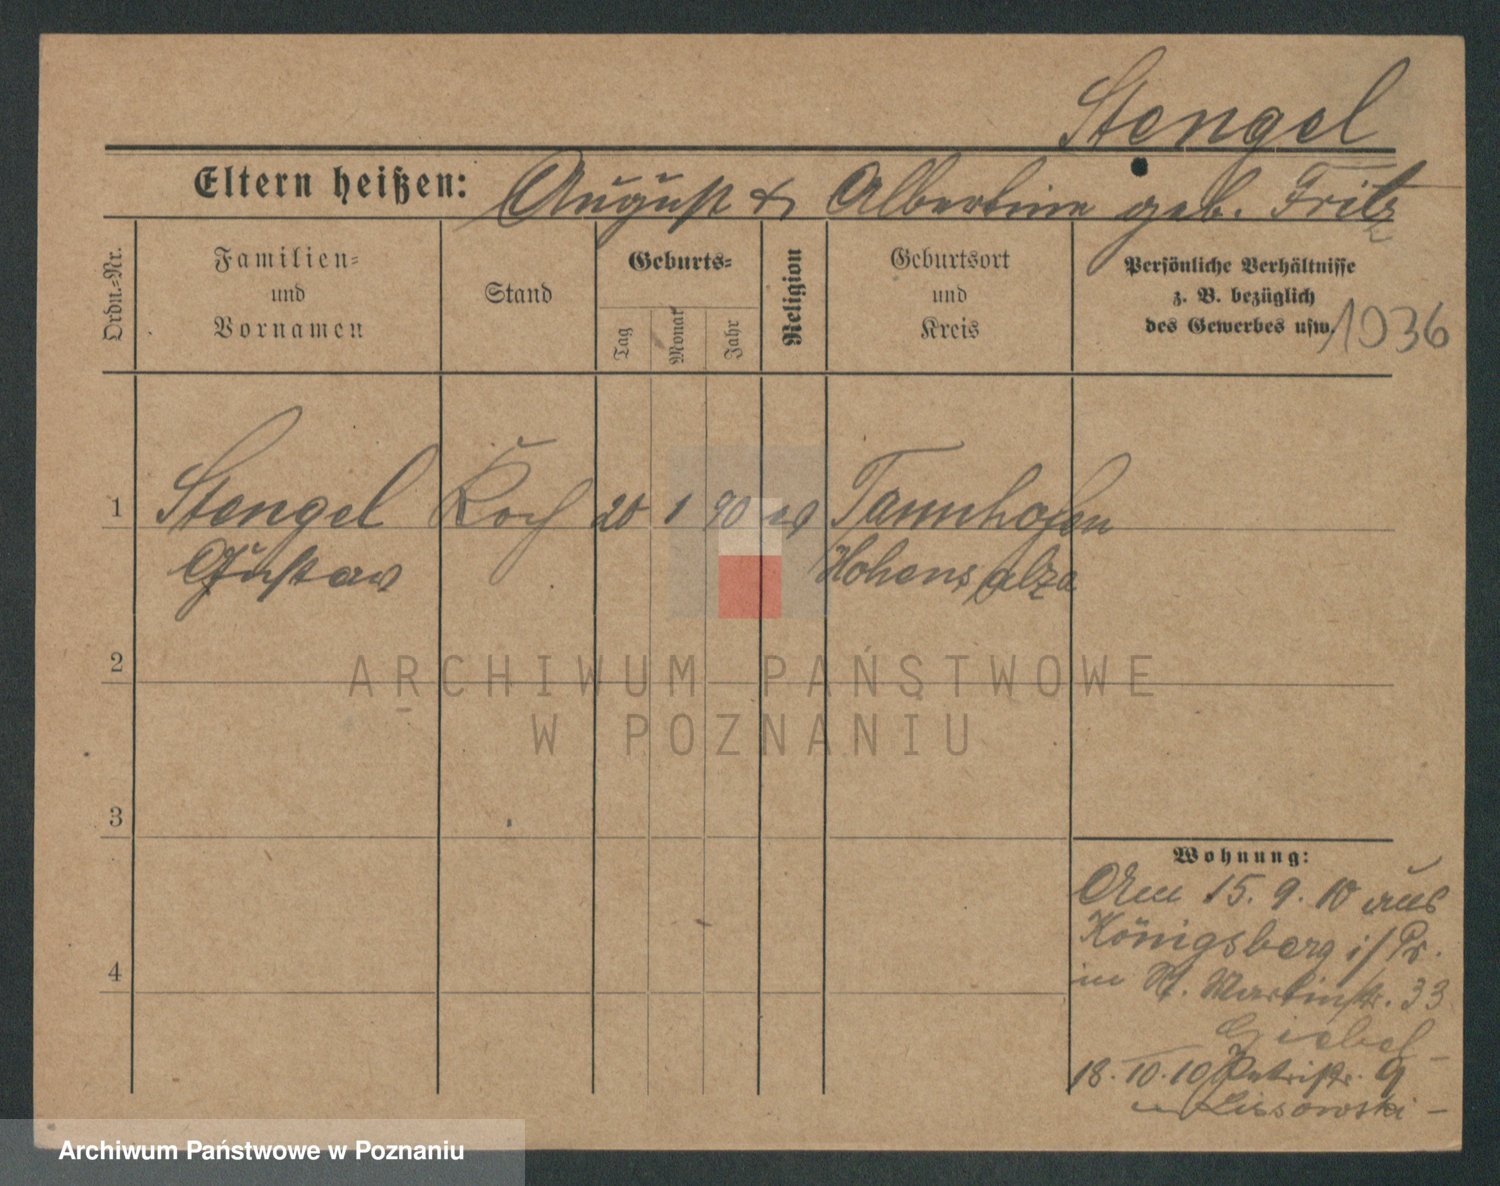 Stengel
Eltern heißen: August & Albertine geb. Fritz
Ordn.-Nr.
Familien-
und
Vornamen
Stand
Geburts-
Tag
Monat
Jahr
Religion
Geburtsort
und
Kreis
Persönliche Verhältnisse
z. B. bezüglich
des Gewerbes usw.
1936
1 Stengel Koch 20 1 90 ev Tannhofen
Gustav Hohensalza
2
3
4
Wohnung:
Am 15. 9. 10 aus
Königsberg i/Pr.
in St. Martinstr. 33
Giebel
18. 10. 10 Petristr. 9
Lissowski –
ARCHIWUM PAŃSTWOWE
W POZNANIU
Archiwum Państwowe w Poznaniu